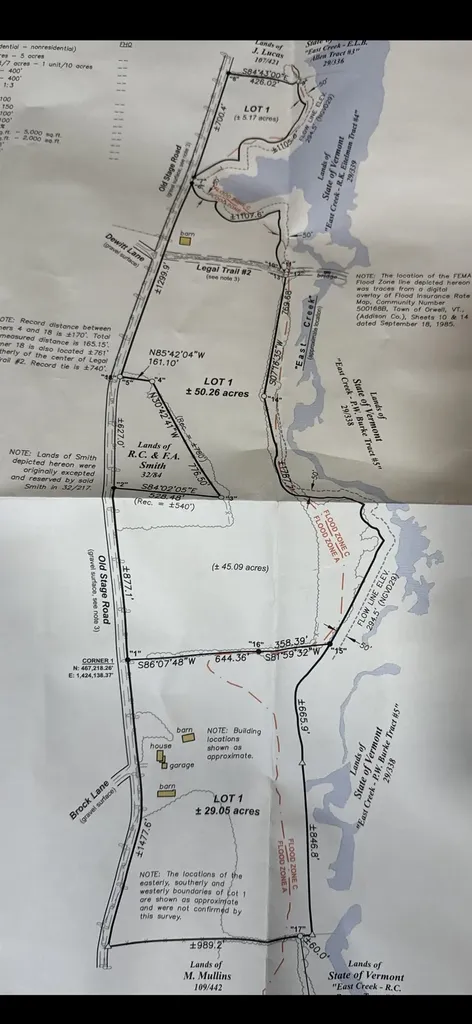 Lands of
J. Lucas
107/421
"East Creek - E.L.B.
Allen Tract #3"
29/336
S84°43'00"E
426.02'
- 400'
- 400'
1:3
100
150
LOT 1
(± 5.17 acres)
±700.4'
50'
FLOW LINE ELEV.
294.5' (NGVD29)
Lands of
State of Vermont
"East Creek - R.K. Eitelman Tract #4"
29/339
Old Stage Road
(gravel surface, see note 3)
±1107.6'
barn
50'
Dewitt Lane
(gravel surface)
Legal Trail #2
(see note 3)
±1299.9'
"East Creek"
(Approximate location)
NOTE: The location of the FEMA
Flood Zone line depicted hereon
was traces from a digital
overlay of Flood Insurance Rate
Map, Community Number
500168B, Town of Orwell, VT.,
(Addison Co.), Sheets 10 & 14
dated September 18, 1985.
OTE: Record distance between
ners 4 and 18 is ±170'. Total
measured distance is 165.15'.
ner 18 is also located ±761'
therly of the center of Legal
rail #2. Record tie is ±740'.
N85°42'04"W
161.10'
LOT 1
± 50.26 acres
S07°16'35"W
N30°42'41"W
776.50'
(Rec. = ±780')
±627.0'
Lands of
R.C. & F.A.
Smith
32/84
Lands of
State of Vermont
"East Creek - P.W. Burke Tract #5"
29/338
NOTE: Lands of Smith
depicted hereon were
originally excepted
and reserved by said
Smith in 32/217.
"2"
S84°02'05"E
528.48'
(Rec. = ±540')
"3"
50'
FLOOD ZONE C
FLOOD ZONE A
Old Stage Road
(gravel surface, see note 3)
±877.1'
(± 45.09 acres)
FLOW LINE ELEV.
294.5' (NGVD29)
50'
CORNER 1
N: 467,218.26'
E: 1,424,138.37'
"1"
S86°07'48"W
644.36'
"16"
358.39'
S81°59'32"W
"15"
±665.9'
barn
house
garage
barn
NOTE: Building
locations
shown as
approximate.
Brock Lane
(gravel surface)
LOT 1
± 29.05 acres
±1477.6'
±846.8'
Lands of
State of Vermont
"East Creek - P.W. Burke Tract #5"
29/338
FLOOD ZONE C
FLOOD ZONE A
NOTE: The locations of the
easterly, southerly and
westerly boundaries of Lot 1
are shown as approximate
and were not confirmed by
this survey.
"17"
±989.2'
±60.0'
Lands of
M. Mullins
109/442
Lands of
State of Vermont
"East Creek - R.C.